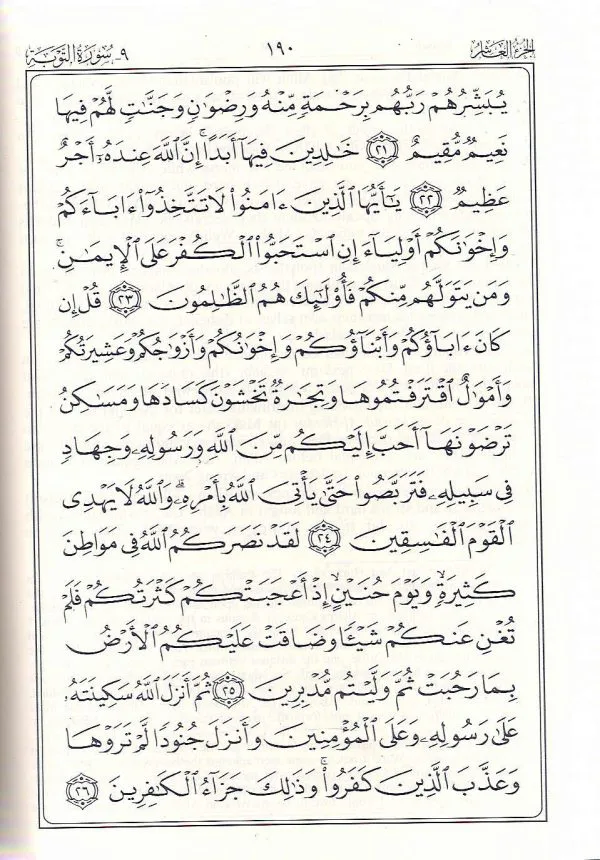 الجزء العاشر ١٩٠ ٩- سورة التوبة
يُبَشِّرُهُمْ رَبُّهُم بِرَحْمَةٍ مِّنْهُ وَرِضْوَٰنٍ وَجَنَّٰتٍ لَّهُمْ فِيهَا
نَعِيمٌ مُّقِيمٌ ٢١ خَٰلِدِينَ فِيهَآ أَبَدًا ۚ إِنَّ ٱللَّهَ عِندَهُۥٓ أَجْرٌ
عَظِيمٌ ٢٢ يَٰٓأَيُّهَا ٱلَّذِينَ ءَامَنُوا۟ لَا تَتَّخِذُوٓا۟ ءَابَآءَكُمْ
وَإِخْوَٰنَكُمْ أَوْلِيَآءَ إِنِ ٱسْتَحَبُّوا۟ ٱلْكُفْرَ عَلَى ٱلْإِيمَٰنِ ۚ
وَمَن يَتَوَلَّهُم مِّنكُمْ فَأُو۟لَٰٓئِكَ هُمُ ٱلظَّٰلِمُونَ ٢٣ قُلْ إِن
كَانَ ءَابَآؤُكُمْ وَأَبْنَآؤُكُمْ وَإِخْوَٰنُكُمْ وَأَزْوَٰجُكُمْ وَعَشِيرَتُكُمْ
وَأَمْوَٰلٌ ٱقْتَرَفْتُمُوهَا وَتِجَٰرَةٌ تَخْشَوْنَ كَسَادَهَا وَمَسَٰكِنُ
تَرْضَوْنَهَآ أَحَبَّ إِلَيْكُم مِّنَ ٱللَّهِ وَرَسُولِهِۦ وَجِهَادٍ
فِى سَبِيلِهِۦ فَتَرَبَّصُوا۟ حَتَّىٰ يَأْتِىَ ٱللَّهُ بِأَمْرِهِۦ ۗ وَٱللَّهُ لَا يَهْدِى
ٱلْقَوْمَ ٱلْفَٰسِقِينَ ٢٤ لَقَدْ نَصَرَكُمُ ٱللَّهُ فِى مَوَاطِنَ
كَثِيرَةٍ ۙ وَيَوْمَ حُنَيْنٍ ۙ إِذْ أَعْجَبَتْكُمْ كَثْرَتُكُمْ فَلَمْ
تُغْنِ عَنكُمْ شَيْـًٔا وَضَاقَتْ عَلَيْكُمُ ٱلْأَرْضُ
بِمَا رَحُبَتْ ثُمَّ وَلَّيْتُم مُّدْبِرِينَ ٢٥ ثُمَّ أَنزَلَ ٱللَّهُ سَكِينَتَهُۥ
عَلَىٰ رَسُولِهِۦ وَعَلَى ٱلْمُؤْمِنِينَ وَأَنزَلَ جُنُودًا لَّمْ تَرَوْهَا
وَعَذَّبَ ٱلَّذِينَ كَفَرُوا۟ ۚ وَذَٰلِكَ جَزَآءُ ٱلْكَٰفِرِينَ ٢٦